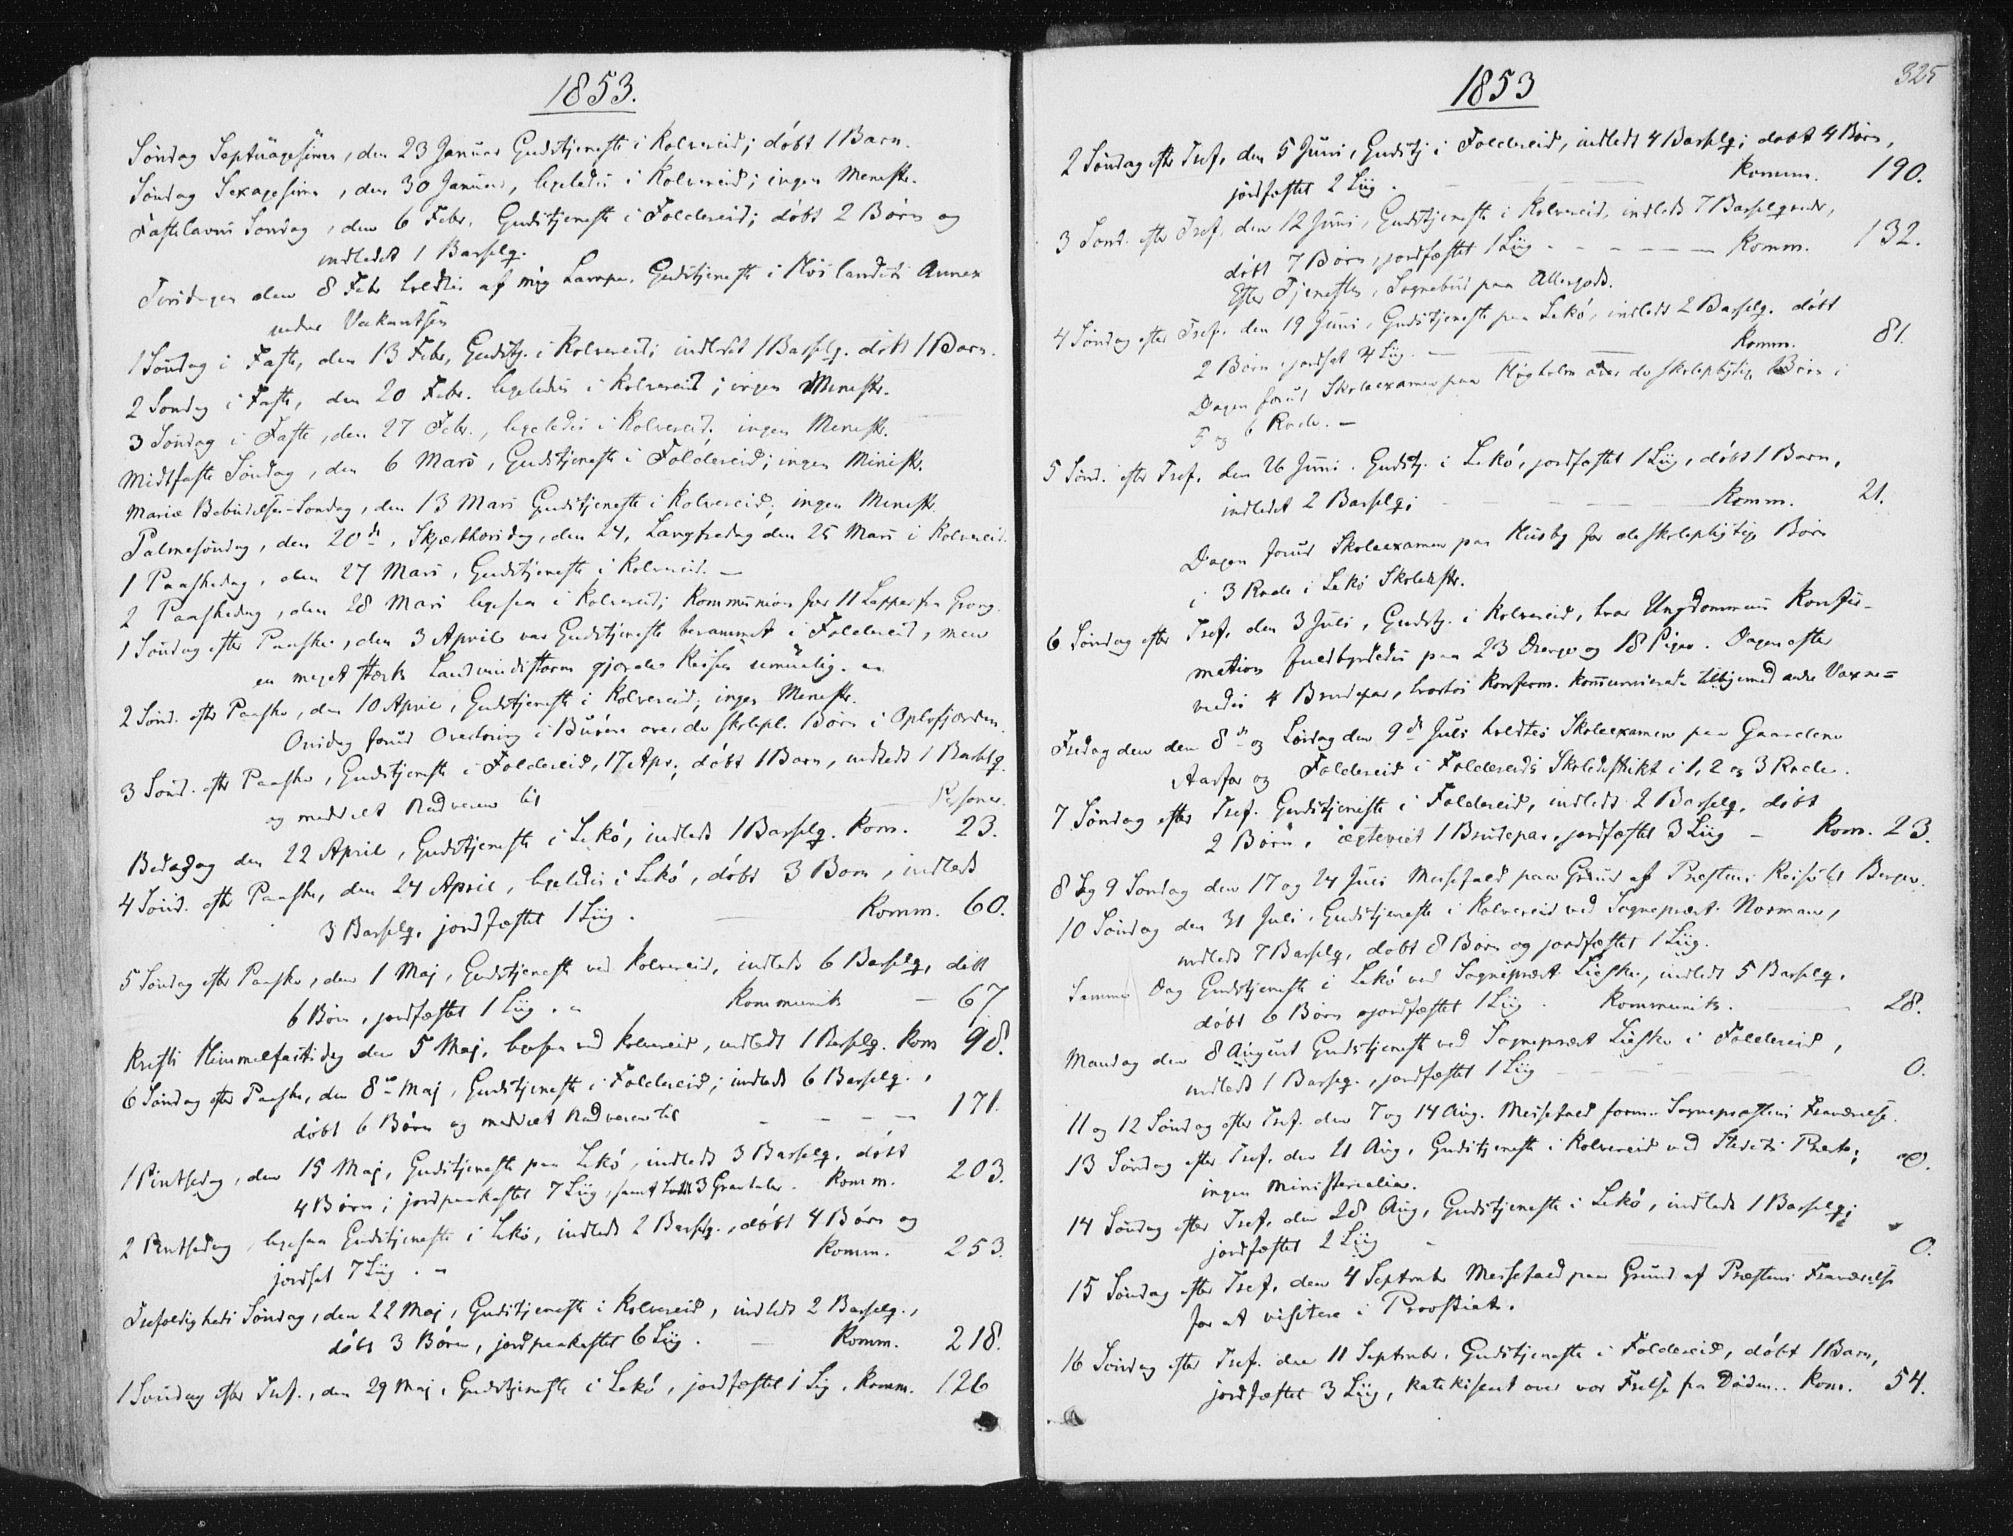 1853.
Søndag Septuagesima, den 23 Januar Gudstjeneste i Kolvereid; døbt 1 Barn.
Søndag Sexagesima, den 30 Januar, ligeledes i Kolvereid; ingen Menestr.
Fastelavns Søndag, den 6 Febr. Gudstjeneste i Foldereid; døbt 2 Børn og
indledet 1 Barselq.
Tirsdagen den 8 Febr holdtes af mig Gudstjeneste i Høilandets Annex
under Vakantsen
1 Søndag i Faste, den 13 Febr, Gudstj. i Kolvereid; indledt 1 Barselq. døbt 1 Barn.
2 Søndag i Faste, den 20 Febr. ligeledes i Kolvereid; ingen Menestr.
3 Søndag i Faste, den 27 Febr., ligeledes i Kolvereid. ingen Menestr.
Midtfaste Søndag, den 6 Mars, Gudstjeneste i Foldereid; ingen Ministr.
Mariæ Bebudelses-Søndag, den 13 Mars Gudstjeneste i Kolvereid; ingen Menestr.
Palmesøndag, den 20de, Skjærthorsdag, den 24, Langfredag den 25 Mars i Kolvereid.
1 Paaskedag, den 27 Mars, Gudstjeneste i Kolvereid. —
2 Paaskedag, den 28 Mars ligesaa i Kolvereid; Kommunion for 11 Lapper fra Grong.
1 Søndag efter Paaske, den 3 April var Gudstjeneste berammet i Foldereid, men
en meget stærk Landvindsstorm gjorde Reisen umuelig.
2 Sønd. efter Paaske, den 10 April, Gudstjeneste i Kolvereid, ingen Menestr.
Onsdag forud Overhøring i Buøen over de skolepl. Børn i Oplofjorden.
3 Sønd. efter Paaske, Gudstjeneste i Foldereid, 17 Apr. døbt 1 Barn, indledt 1 Barselq.
og meddelt Nadveren til Personer.
Bededag den 22 April, Gudstjeneste i Lekø, indledt 1 Barselq. Kom. 23.
4 Sønd. efter Paaske, den 24 April, ligeledes i Lekø, døbt 3 Børn, indledt
3 Barselq. jordfæstet 1 Liig. Komm. 60.
5 Søndag efter Paaske, den 1 Maj, Gudstjeneste ved Kolvereid, indledt 6 Barselq, døbt
6 Børn, jordfæstet 1 Liig. Kommunik — 67
Kristi Himmelfartsdag den 5 Maj, ligesaa ved Kolvereid, indledt 1 Barselq. Kom 98.
6 Søndag efter Paaske, den 8de Maj, Gudstjeneste i Foldereid; indledt 6 Barselq.,
døbt 6 Børn og meddelt Nadveren til — — — 171.
1 Pintsedag, den 15 Maj, Gudstjeneste paa Lekø, indledt 3 Barselq. døbt
4 Børn; jordpaakastet 7 Liig, samt holdt 3 Gravtaler. Komm. 203.
2 Pintsedag, ligesaa Gudstjeneste i Lekø, indledt 2 Barselq., døbt 4 Børn og
jordfæst 7 Liig. — Komm. 253.
Trefoldigheds Søndag, den 22 Maj, Gudstjeneste i Kolvereid, indledt 2 Barselq.,
døbt 3 Børn, jordpaakastet 6 Liig. — Komm. 218.
1 Søndag efter Tref., den 29 Maj, Gudstjeneste i Lekø, jordfæstet 1 Lig. Komm. 126
325
1853
2 Søndag efter Tref. den 5 Juni, Gudstj. i Foldereid, indledt 4 Barselq; døbt 4 Børn,
jordfæstet 2 Liig. — Komm. 190.
3 Sønd. efter Tref. den 12 Juni, Gudstjeneste i Kolvereid, indledt 7 Barselqvinder,
døbt 7 Børn, jordfæstet 1 Liig - - - Komm. 132.
Efter Tjenesten, Sognebud paa
4 Søndag efter Tref. den 19 Juni, Gudstjeneste paa Lekø, indledt 2 Barselq. døbt
2 Børn jordfæst 4 Liig. — Komm. 81.
Dagen forud Skoleexamen paa Høgholm over de skolepligtige Børn i
5 og 6 Rode. —
5 Sønd. efter Tref. den 26 Juni. Gudstj. i Lekø, jordfæstet 1 Liig, døbt 1 Barn,
indledet 2 Barselq; — Komm. 21.
Dagen forud Skoleexamen paa Husby for de skolepligtige Børn
i 3 Rode i Lekø Skoledistr.
6 Søndag efter Tref. den 3 Juli, Gudstj. i Kolvereid, hvor Ungdommens Konfir-
mation fuldbyrdedes paa 23 Drenge og 18 Piger. Dagen efter
viedes 4 Brudepar, hvorhos Konfirm. kommunicerede tilligemed andre Voxne=
Fredag den den 8de og Lørdag den 9de Juli holdtes Skoleexamen paa Gaardene
Aarfor og Foldereid i Foldereids Skoledistrikt i 1, 2 og 3 Rode.
7 Søndag efter Tref. Gudstjeneste i Foldereid, indledt 2 Barselq. døbt
2 Børn, ægteviet 1 Brudepar, jordfæstet 3 Liig — Kom. 23.
8 og 9 Søndag den 17 og 24 Juli Messefald paa Grund af Præstens Reise til Bergen.
10 Søndag den 31 Juli. Gudstjeneste i Kolvereid ved Sognepræst Norman,
indledt 7 Barselq, døbt 8 Børn og jordfæstet 1 Liig.
Samme Dag Gudstjeneste i Lekø ved Sognepræst, indledt 5 Barselq.
døbt 6 Børn jordfæstet 1 Liig. Kommunik. — 28.
Mandag den 8 August Gudstjeneste ved Sognepræst i Foldereid,
indledt 1 Barselq., jordfæstet 1 Liig — — — 0.
11 og 12 Søndag efter Tref. den 7 og 14 Aug. Messefald form. Sognepræstens Fraværelse.
13 Søndag efter Tref. den 21 Aug, Gudstjeneste i Kolvereid ved Stedets Præst; 0.
ingen Ministerialier.
14 Søndag efter Tref. den 28 Aug, Gudstjeneste i Lekø, indledt 1 Barselq;
jordfæstet 2 Liig — 0.
15 Søndag efter Tref. den 4 September Messefald paa Grund af Præstens Fraværelse
for at visitere i Provstiet.
16 Søndag efter Tref. den 11 Septmbr. Gudstjeneste i Foldereid, døbt 1 Barn,
jordfæstet 3 Liig, Katekiseret over vor Frelse fra Døden.. Kom. 54.